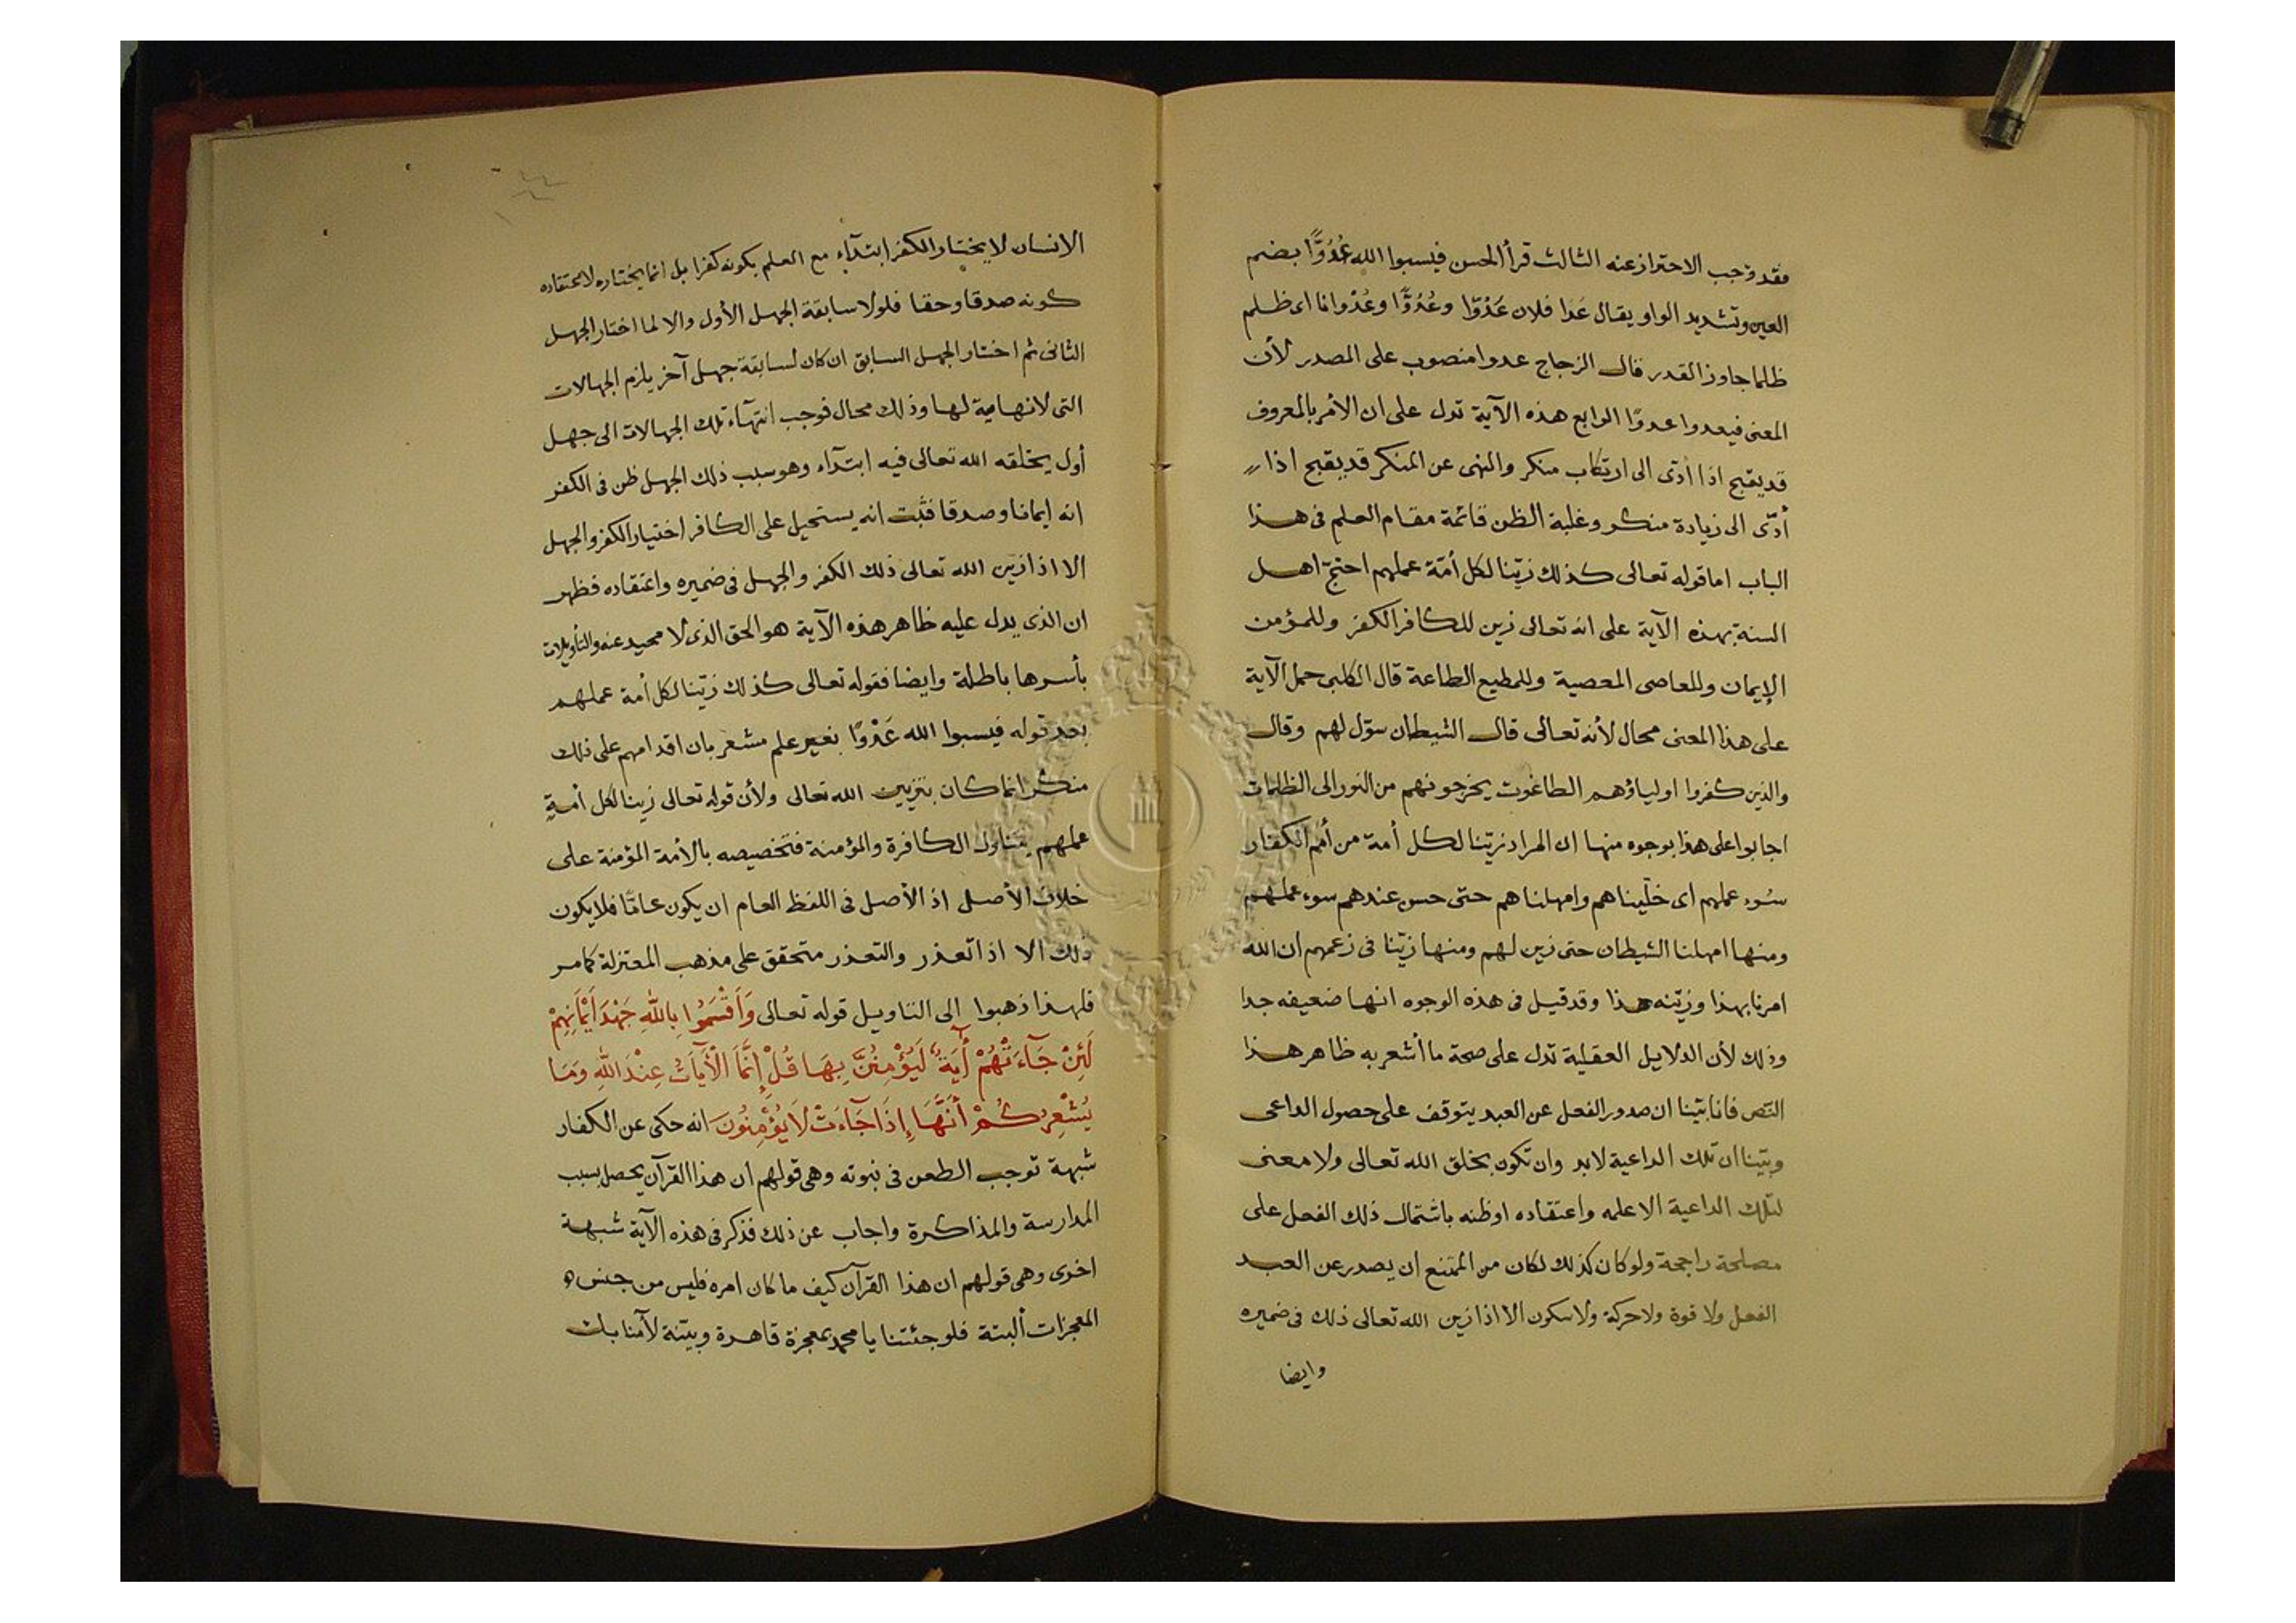 فقد وجب الاحتراز عنه الثالث قرأ الحسن فيسبوا الله عُدُوًّا بضم
العين وتشديد الواو يقال عَدَا فلان عَدْوًا وعُدُوًّا وعُدْوانا اى ظلم
ظلما جاوز القدر قال الزجاج عدوا منصوب على المصدر لأن
المعنى فيعدوا عدوًا الرابع هذه الآية تدل على ان الأمر بالمعروف
قد يقبح اذا أدّى الى ارتكاب منكر والنهى عن المنكر قد يقبح اذا
أدّى الى زيادة منكر وغلبة الظن قائمة مقام العلم فى هذا
الباب اما قوله تعالى كذلك زيّنا لكل أمّة عملهم احتج اهل
السنة بهذه الآية على انه تعالى زين للكافر الكفر وللمؤمن
الإيمان وللعاصى المعصية وللمطيع الطاعة قال الكلبى حمل الآية
على هذا المعنى محال لأنه تعالى قال الشيطان سوّل لهم وقال
والذين كفروا اولياؤهم الطاغوت يخرجونهم من النور الى الظلمات
اجابوا على هذا بوجوه منها ان المراد زيّنا لكل أمة من أمم الكفار
سُوء عملهم اى خلّيناهم وامهلناهم حتّى حسن عندهم سوء عملهم
ومنها امهلنا الشيطان حتى زين لهم ومنها زيّنا فى زعمهم ان الله
امرنا بهذا وزيّنه هذا وقد قيل فى هذه الوجوه انها ضعيفه جدا
وذلك لأن الدلايل العقلية تدل على صحة ما أشعر به ظاهر هذا
النّص فانا بيّنا ان صدور الفعل عن العبد يتوقف على حصول الداعى
وبيّنا ان تلك الداعية لابد وان تكون بخلق الله تعالى ولا معنى
لتلك الداعية الا علمه واعتقاده اوظنه باشتمال ذلك الفعل على
مصلحة راجحة ولو كان كذلك لكان من الممتنع ان يصدر عن العبد
الفعل ولا قوة ولا حركة ولا سكون الا اذا زين الله تعالى ذلك فى ضميره
وايضا
الانسان لا يختار الكفر ابتدآء مع العلم بكونه كفرا بل انما يختاره لاعتقاده
كونه صدقا وحقا فلولا سابقة الجهل الأول والا لما اختار الجهل
الثانى ثم اختار الجهل السابق ان كان لسابقة جهل آخر يلزم الجهالات
التى لا نهاية لها وذلك محال فوجب انتهآء تلك الجهالات الى جهل
أول يخلقه الله تعالى فيه ابتدآء وهو سبب ذلك الجهل ظن فى الكفر
انه إيمانا وصدقا فثبت انه يستحيل على الكافر اختيار الكفر والجهل
الا اذا زيّن الله تعالى ذلك الكفر والجهل فى ضميره واعتقاده فظهر
ان الذى يدل عليه ظاهر هذه الآية هو الحق الذى لا محيد عنه والتأويلات
بأسرها باطلة وايضا فقوله تعالى كذلك زيّنا لكل أمة عملهم
بعد قوله فيسبوا الله عَدْوًا بغير علم مشعر بان اقدامهم على ذلك
منكر انما كان بتزيين الله تعالى ولأن قوله تعالى زينا لكل أمةٍ
عملهم يتناول الكافرة والمؤمنة فتخصيصه بالأمة المؤمنة على
خلاف الأصل اذ الأصل فى اللفظ العام ان يكون عامّا فلا يكون
ذلك الا اذا تعذر والتعذر متحقق على مذهب المعتزلة كما مر
فلهذا ذهبوا الى التاويل قوله تعالى وَأَقْسَمُوا بِاللهِ جَهْدَ أَيْمَانِهِمْ
لَئِنْ جَآءَتْهُمْ أٓيَةٌ لَيُؤْمِنُنَّ بِهَا قُلْ إِنَّمَا الْأٓيَاتُ عِنْدَ اللهِ وَمَا
يُشْعِرُكُمْ أَنَّهَا إِذَا جَآءَتْ لَا يُؤْمِنُونَ انه حكى عن الكفار
شبهة توجب الطعن فى نبوته وهى قولهم ان هذا القرآن يحصل بسبب
المدارسة والمذاكرة واجاب عن ذلك فذكر فى هذه الآية شبهة
اخرى وهى قولهم ان هذا القرآن كيف ما كان امره فليس من جنس
المعجزات ألبتة فلو جئتنا يا محمد بمعجزة قاهرة وبيّنة لآمنا بك